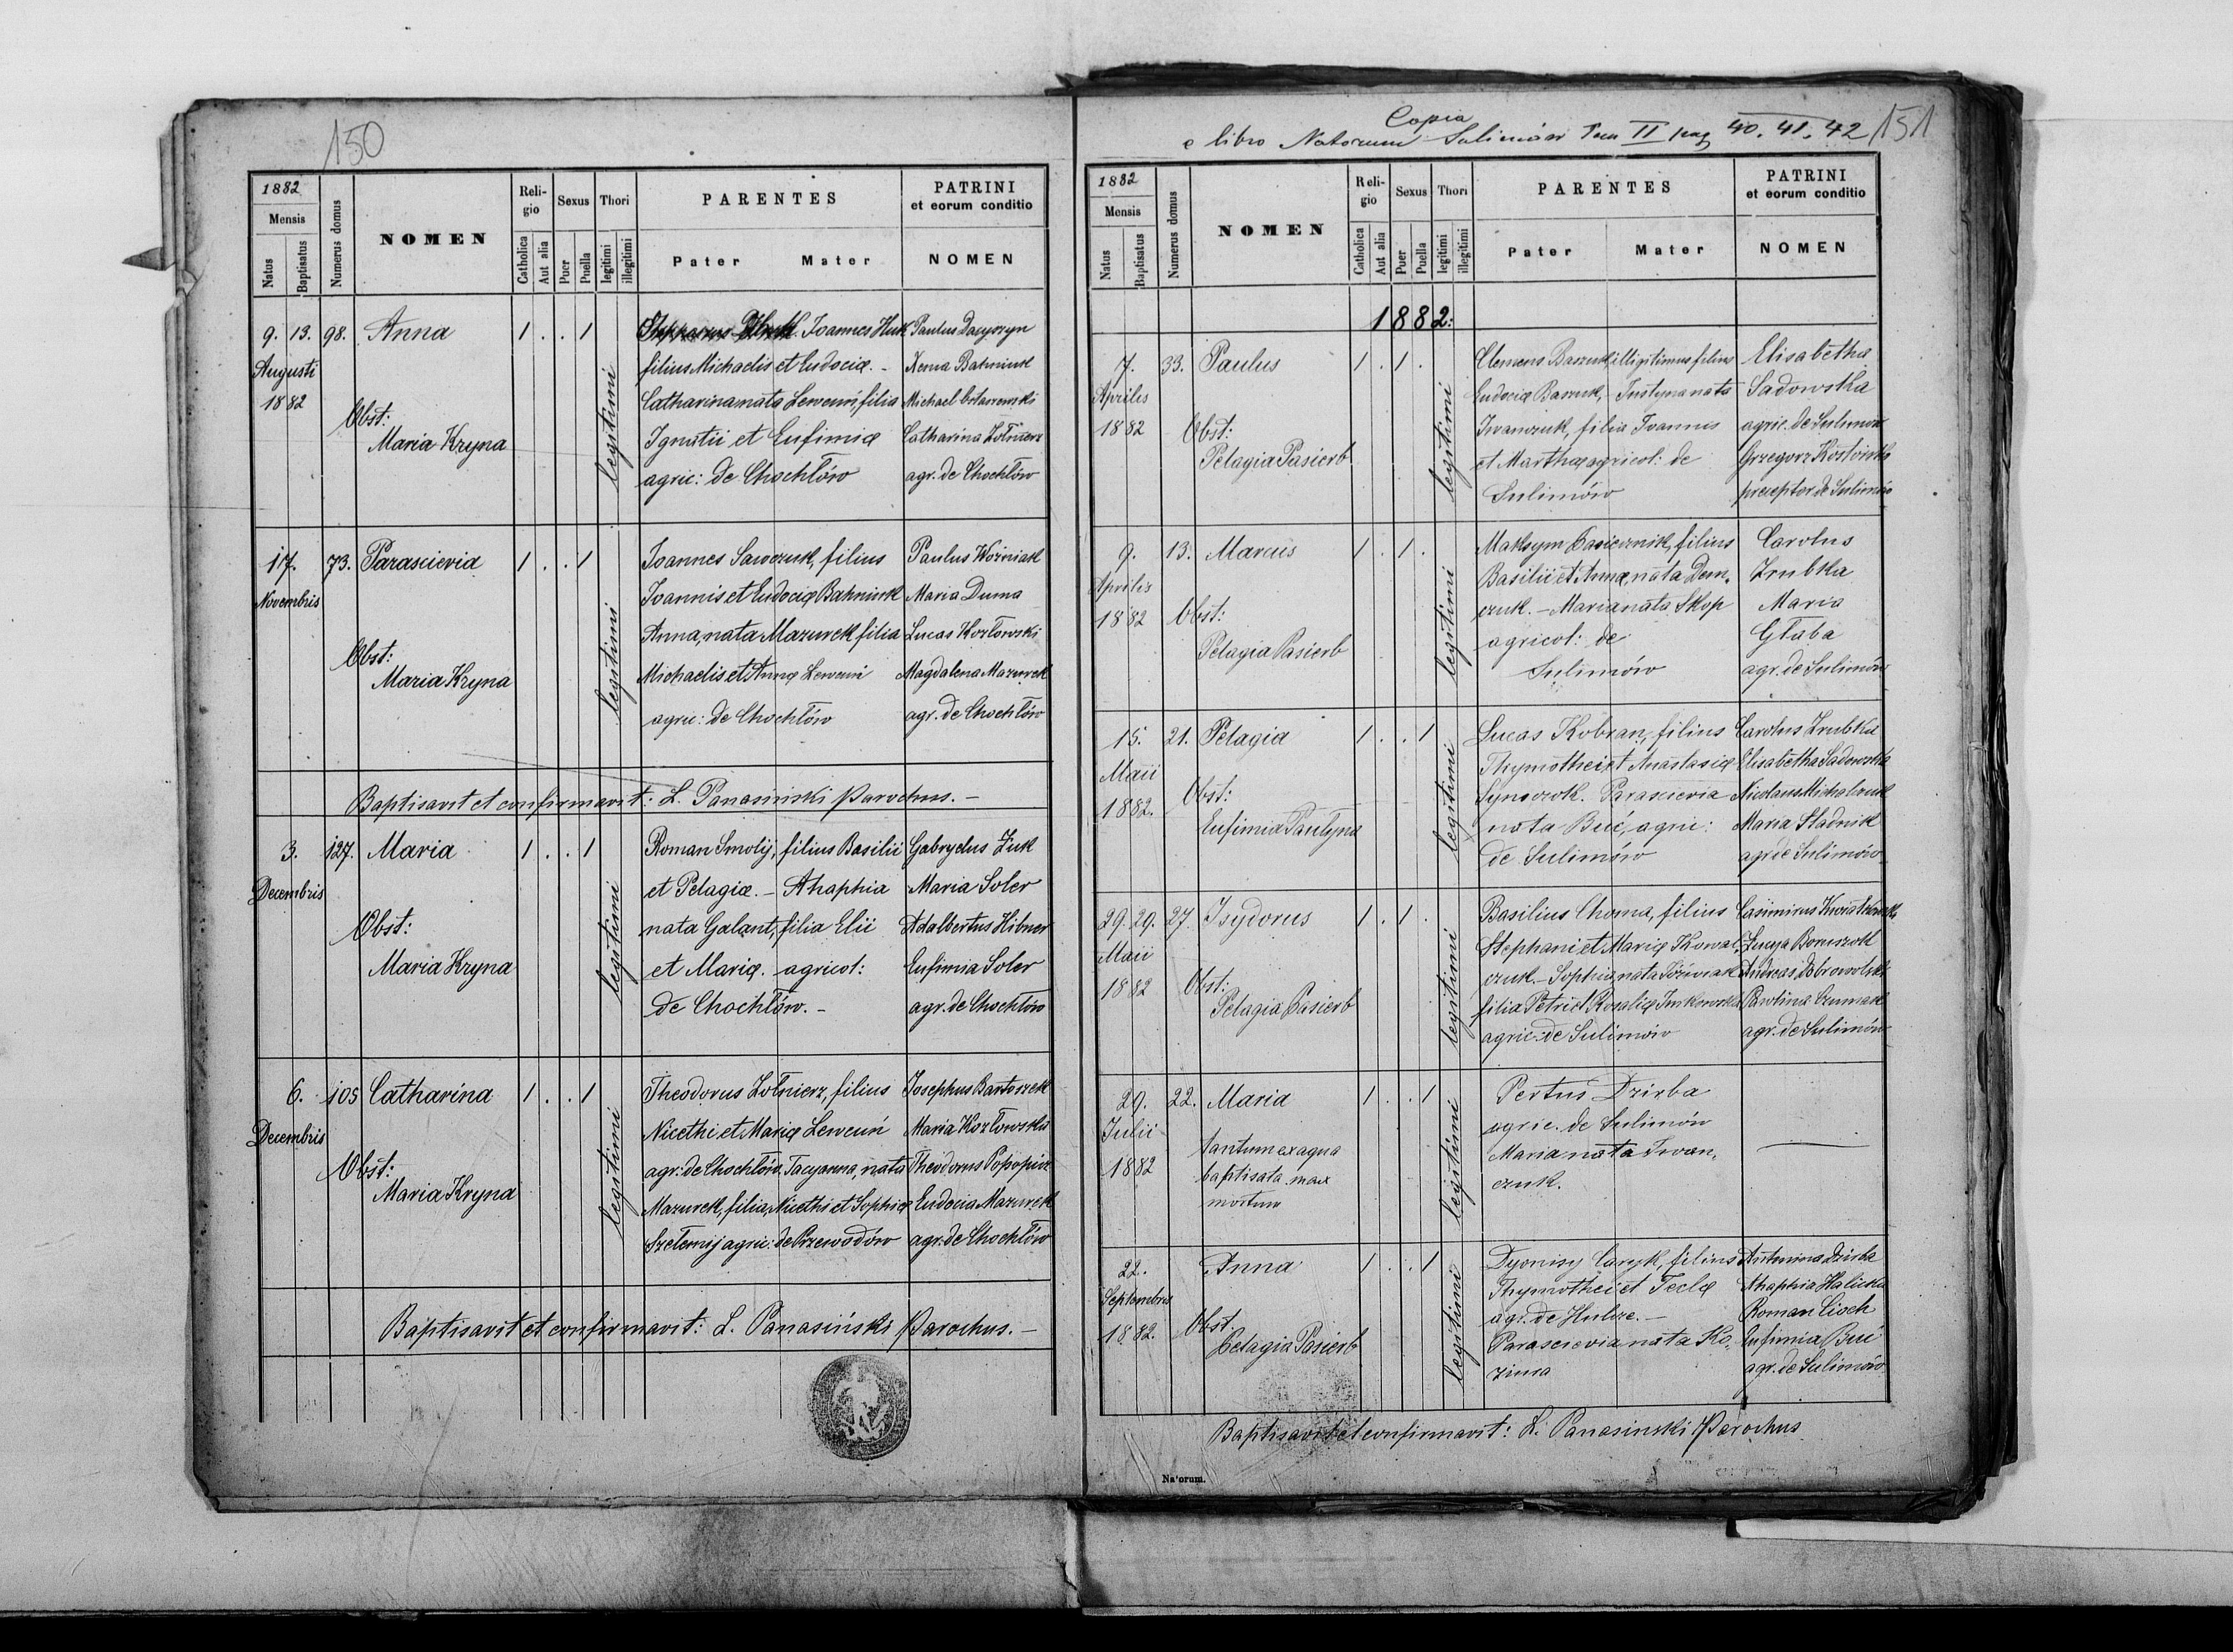 150
1882
Mensis
Natus
Baptisatus
Numerus domus
NOMEN
Religio
Catholica
Aut alia
Sexus
Puer
Puella
Thori
legitimi
illegitimi
PARENTES
Pater Mater
PATRINI
et eorum conditio
NOMEN
9. 13. 98. Anna 1 . . 1
Augusti
1882
Obst:
Maria Kryna
legitimi
Joannes Huk
filius Michaelis et Eudociæ. -
Catharina nata Leweuń, filia
Ignatii et Eufimiæ
agric: de Chochłów
Paulus Dacyszyn
Xenia Bahniuk
Michael
Catharina Żołnierz
agr. de Chochłów
17. 73. Parascievia 1 . . 1
Novembris
Obst:
Maria Kryna
legitimi
Joannes Sawczuk, filius
Joannis et Eudociæ Bahniuk
Anna, nata Mazurek filia
Michaelis et Annæ Leweuń
agric: de Chochłów
Paulus Woźniak
Maria Duma
Lucas Kozłowski
Magdalena Mazurek
agr. de Chochłów
Baptisavit et confirmavit: L. Panasiński Parochus. -
3. 127. Maria 1 . . 1
Decembris
Obst:
Maria Kryna
legitimi
Roman Smolij, filius Basilii
et Pelagiæ. - Ahaphia
nata Galant, filia Elii
et Mariæ. agricol:
de Chochłów. -
Gabryelus Żuk
Maria Soler
Adalbertus Hibner
Eufimia Soler
agr. de Chochłów
6. 105 Catharina 1 . . 1
Decembris
Obst:
Maria Kryna
legitimi
Theodorus Żołnierz, filius
Nicethi et Mariæ Leweuń
agr: de Chochłów. Tacyanna, nata
Mazurek, filia, Nicethi et Sophiæ
Szełemij agric: de Przewodów
Josephus Bartoszek
Maria Kozłowska
Theodorus
Eudocia Mazurek
agr. de Chochłów
Baptisavit et confirmavit: L. Panasiński Parochus. -
Copia
e libro Natorum Sulimów Tom II pag 40. 41. 42
151
1882
Mensis
Natus
Baptisatus
Numerus domus
NOMEN
Religio
Catholica
Aut alia
Sexus
Puer
Puella
Thori
legitimi
illegitimi
PARENTES
Pater Mater
PATRINI
et eorum conditio
NOMEN
1882:
7. 33. Paulus 1 . 1 .
Aprilis
1882
Obst:
Pelagia Pasierb
legitimi
Clemens Baszuk, illigitimus filius
Eudociæ Baszuk, Justyna nata
Iwanczuk, filia Joannis
et Marthæ agricol: de
Sulimów
Elisabetha
Sadowska
agric. de Sulimów
Grzegorz
preceptor de Sulimów
9. 13. Marcus 1 . 1 .
Aprilis
1882
Obst:
Pelagia Pasierb
legitimi
Maksym Pasiecznik, filius
Basilii et Annæ, nata Dem-
czuk. - Maria nata Skop
agricol: de
Sulimów
Carolus
Zrubka
Maria
Głaba
agr. de Sulimów
15. 21. Pelagia 1 . . 1
Maii
1882.
Obst:
Eufimia Pautyna
legitimi
Lucas Kobran, filius
Thymothei et Anastasiæ
Parascievia
nata Buć, agric:
de Sulimów
Carolus Zrubka
Elisabetha Sadowska
Nicolaus Michalczuk
Maria Stadnik
agr de Sulimów
29. 29. 27. Isydorus 1 . 1 .
Maii
1882
Obst:
Pelagia Pasierb
legitimi
Basilius Choma, filius
Stephani et Mariæ Kowal-
czuk. - Sophia, nata
filia Petri et Rosaliæ
agric: de Sulimów
Casimirus Kwiatkowski
Łucya
Andreas Dobrowolski
Paulina Czumak
agr. de Sulimów
29. 22. Maria 1 . . 1
Julii
1882
tantum ex aqua
baptisata max
mortua
legitimi
Pertus Dzirba
agric. de Sulimów
Maria nata Iwan-
czuk.
22. Anna 1 . . 1
Septembris
1882.
Obst.
Pelagia Pasierb
legitimi
Dyonisy Caryk, filius
Thymothei et Teclæ
agr. de Hulcze. -
Parascievia nata Ko-
zima
Antonina Dzirba
Ahaphia Halicka
Roman Cioch
Eufimia Buć
agr. de Sulimów
Baptisavit et confirmavit: L. Panasinski Parochus
Natorum.